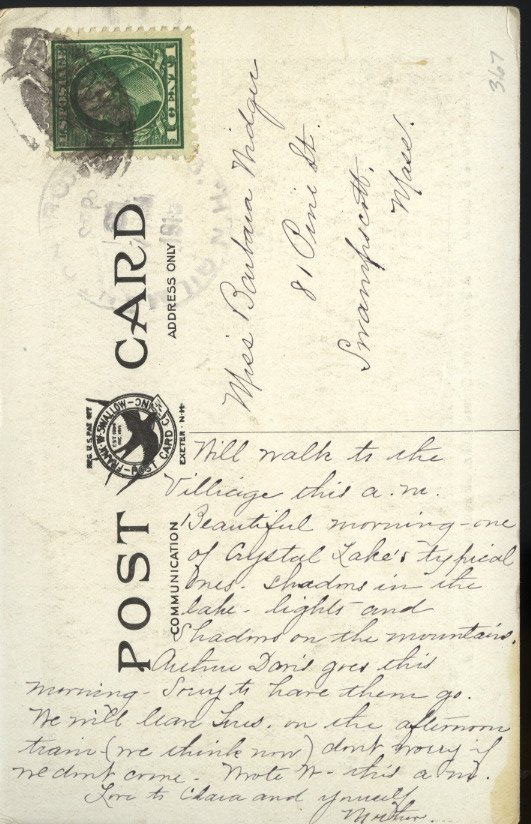 367
U.S. POSTAGE
1 CENT 1
SEP
1915
N.H.
Miss Barbara Widger
81 Pine St.
Swampscott,
Mass.
POST CARD
ADDRESS ONLY
COMMUNICATION
REG. U.S. PAT. OFF.
FRANK W. SWALLOW POST CARD CO. INC.
EXETER - N.H.
Will walk to the
Villiage this a.m.
Beautiful morning - one
of Crystal Lake's typical
ones. Shadows in the
lake - lights and
Shadows on the mountains.
Arthur Davis goes this
morning - Sorry to have them go.
We will leave Tues. on the afternoon
train - (we think now) don't worry if
we dont come. Wrote W - this a.m.
Love to Clara and yourself
Mother